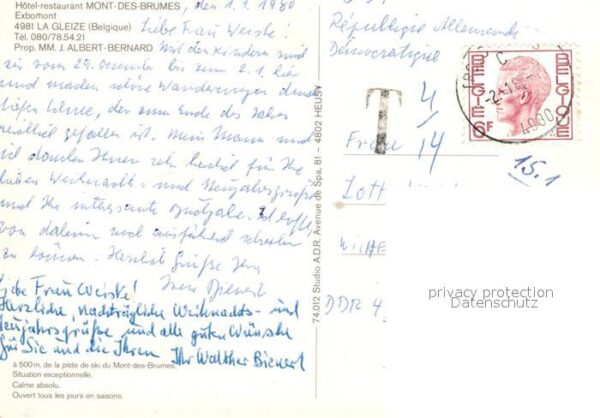 Hôtel-restaurant MONT-DES-BRUMES
Exbomont
4981 LA GLEIZE (Belgique)
Tél. 080/78.54.21
Prop. MM. J. ALBERT-BERNARD
den 1.1.1980
Liebe Frau Weiske!
Mit den Kindern sind
wir vom 29. Dezember bis zum 2.1. hier
und machen schöne Wanderungen durch
tiefen Schnee, der zum Ende des Jahres
endlich gefallen ist. Mein Mann und
ich danken Ihnen sehr herzlich für Ihre
lieben Weihnachts- und Neujahrsgrüße
und Ihre interessante. Ich hoffe,
von daheim noch ausführlich schreiben
zu können. Herzliche Grüße Ihre
Bienert
Liebe Frau Weiske!
Herzliche, nachträgliche Weihnachts- und
Neujahrsgrüße und alle guten Wünsche
für Sie und die Ihren Ihr Walther Bienert
à 500 m. de la piste de ski du Mont-des-Brumes.
Situation exceptionnelle.
Calme absolu.
Ouvert tous les jours en saisons.
74.012 Studio A.D.R. Avenue de Spa, 81 – 4802 HEUSY
République Allemande
Démocratique
T
4/14
Frau
Lott
DDR 4
BELGIE BELGIQUE
6F
4980
15.1
privacy protection
Datenschutz